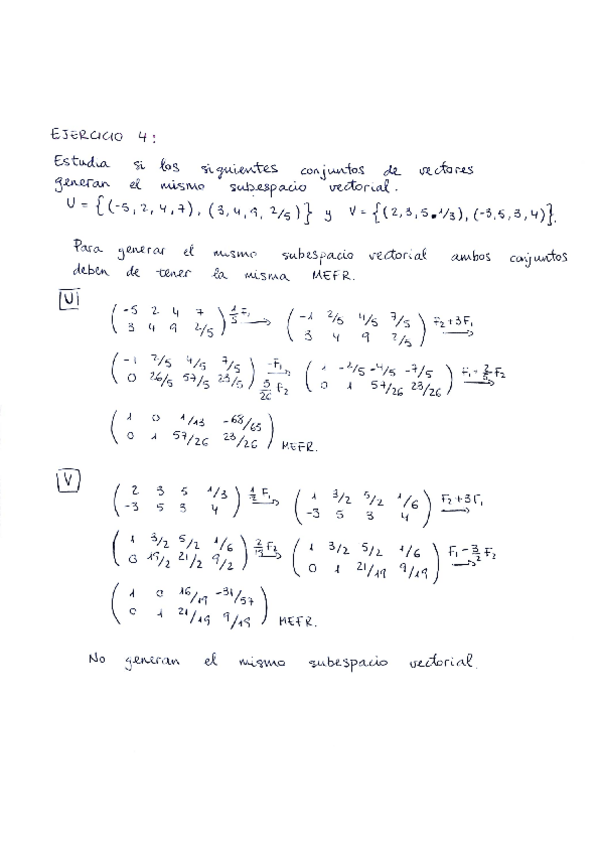 EJERCICIO 4:
Estudia si los siguientes conjuntos de vectores
generan el mismo subespacio vectorial.
U = {(-5, 2, 4, 7), (3, 4, 9, 2/5)} y V = {(2, 3, 5, 1/3), (-3, 5, 3, 4)}.
Para generar el mismo subespacio vectorial ambos conjuntos
deben de tener la misma MEFR.
U
( -5 2 4 7 ; 3 4 9 2/5 ) 1/5 F1 → ( -1 2/5 4/5 7/5 ; 3 4 9 2/5 ) F2+3F1 →
( -1 2/5 4/5 7/5 ; 0 26/5 57/5 23/5 ) -F1 5/26 F2 → ( 1 -2/5 -4/5 -7/5 ; 0 1 57/26 23/26 ) F1+2/5 F2 →
( 1 0 1/13 -68/65 ; 0 1 57/26 23/26 ) MEFR.
V
( 2 3 5 1/3 ; -3 5 3 4 ) 1/2 F1 → ( 1 3/2 5/2 1/6 ; -3 5 3 4 ) F2+3F1 →
( 1 3/2 5/2 1/6 ; 0 19/2 21/2 9/2 ) 2/19 F2 → ( 1 3/2 5/2 1/6 ; 0 1 21/19 9/19 ) F1-3/2 F2 →
( 1 0 16/19 -31/57 ; 0 1 21/19 9/19 ) MEFR.
No generan el mismo subespacio vectorial.